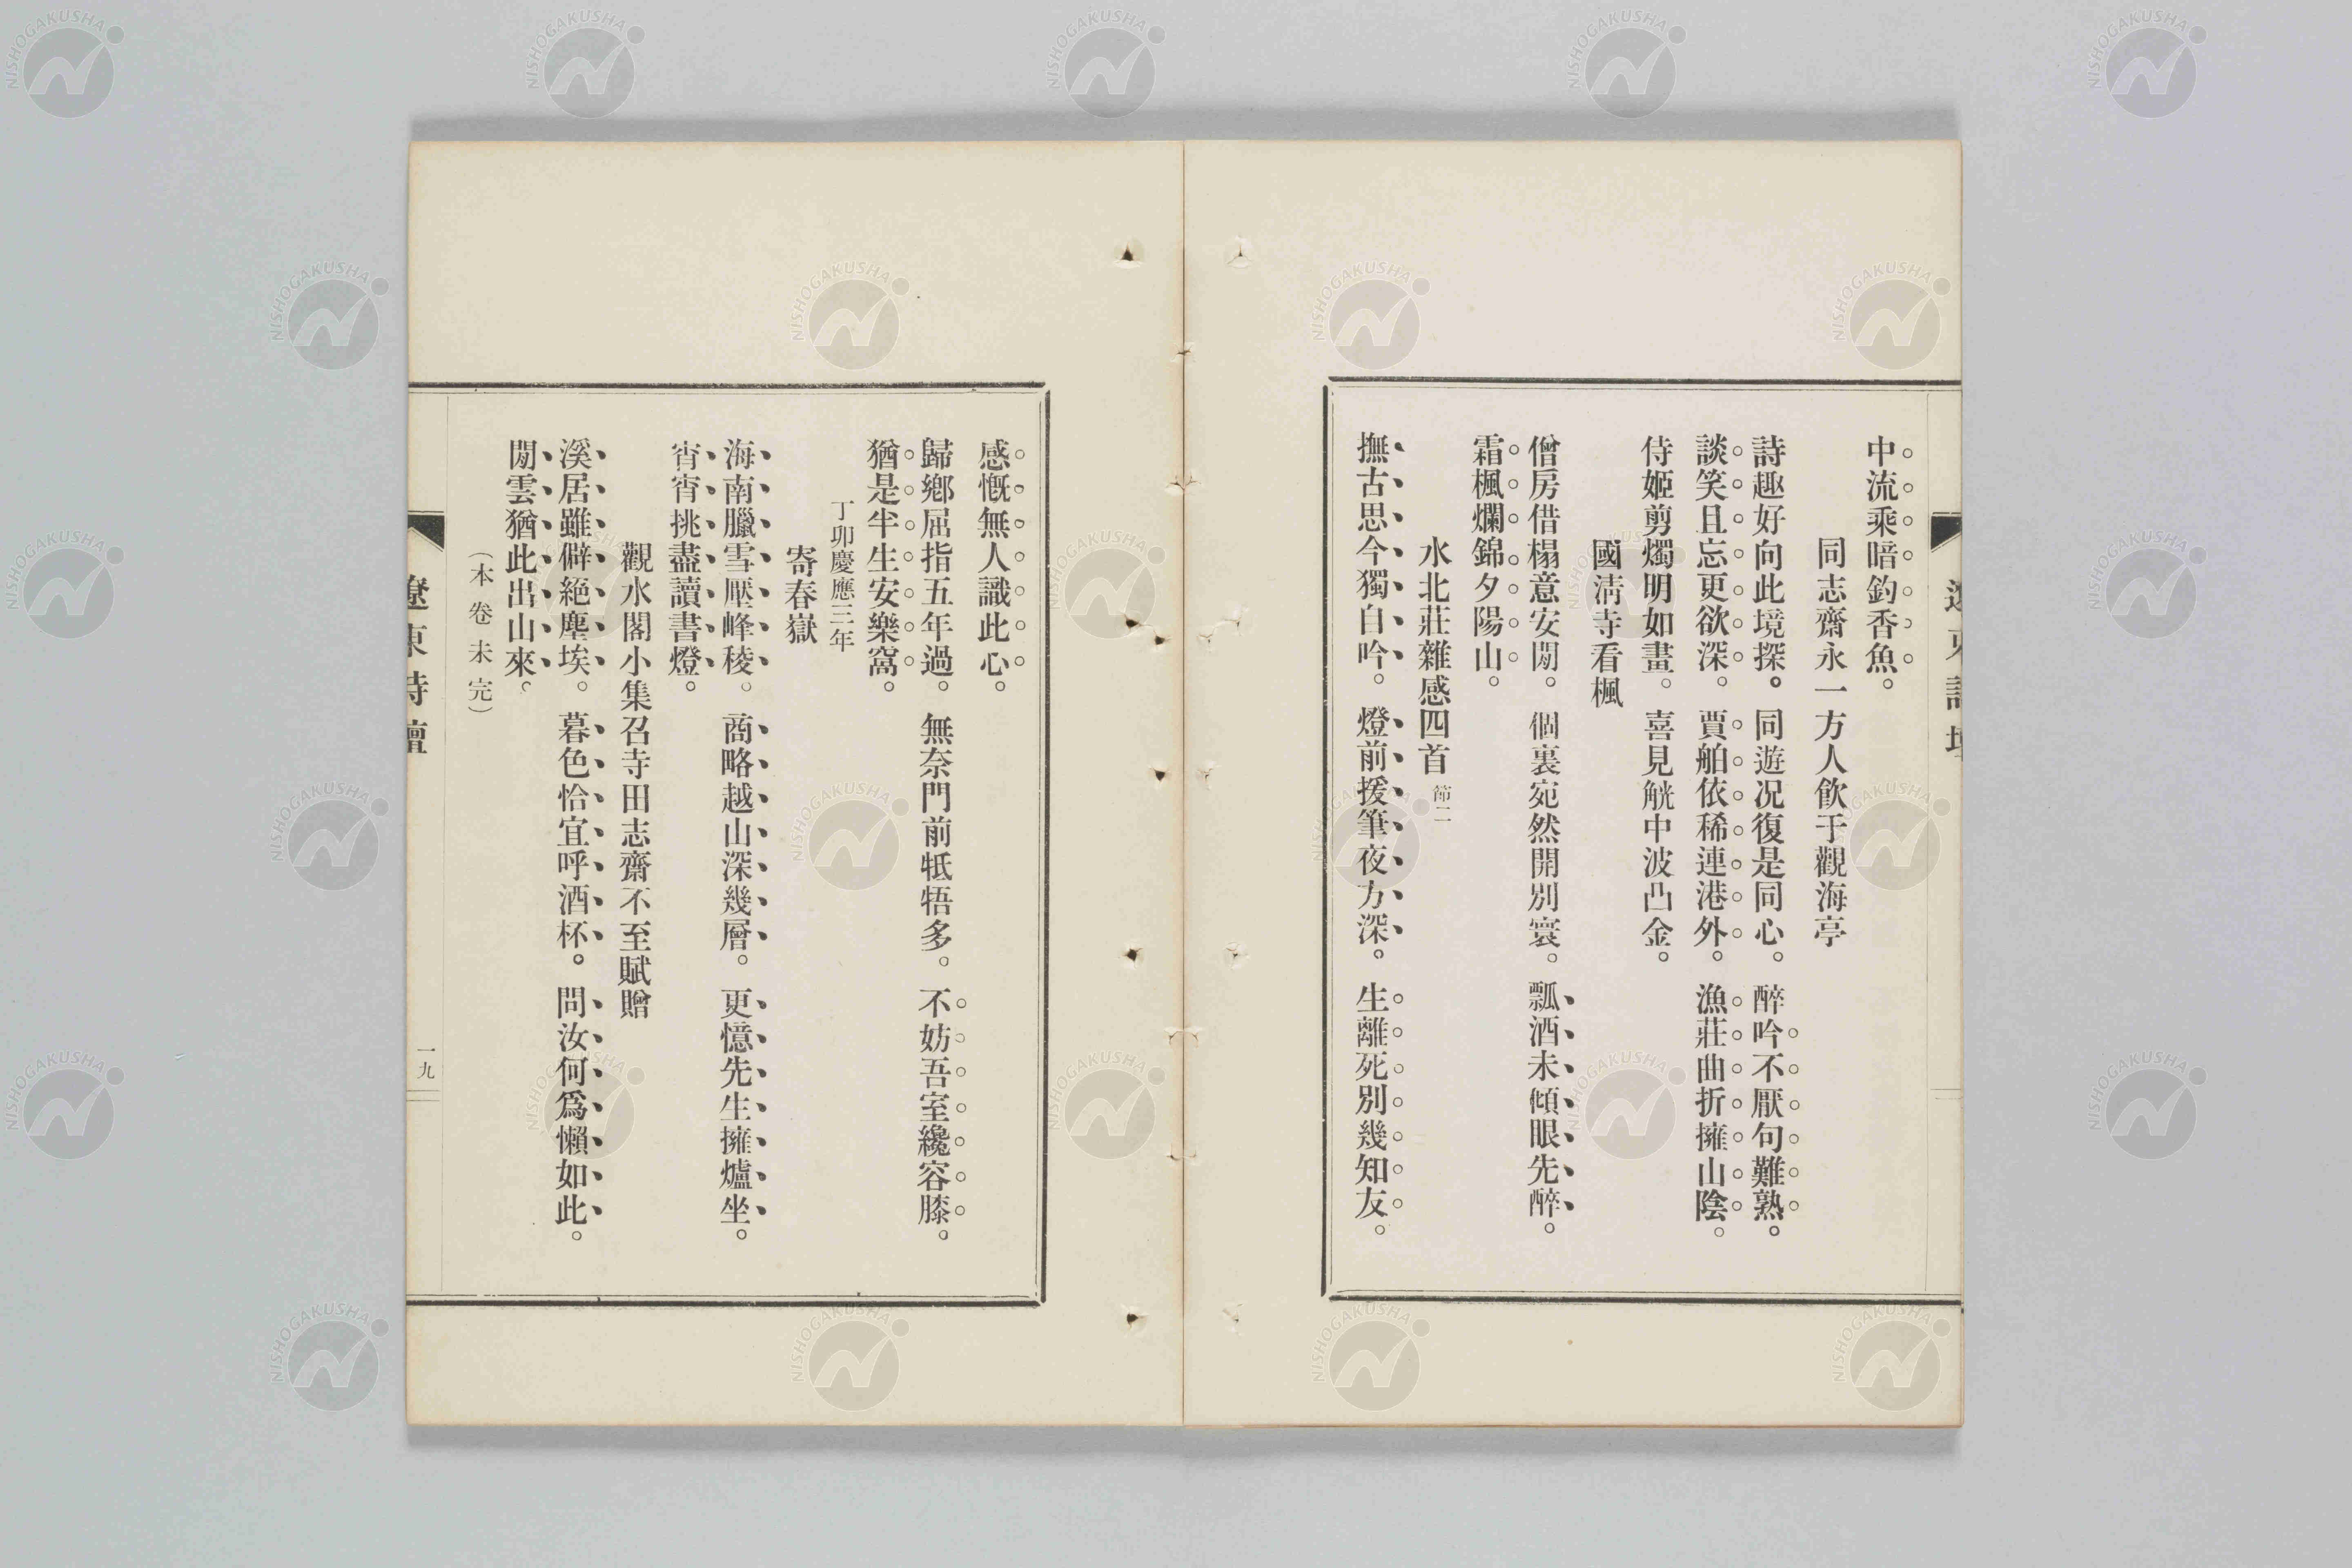 中流乘暗釣香魚。
同志齋永一方人飮于觀海亭
詩趣好向此境探。同遊况復是同心。醉吟不厭句難熟。
談笑且忘更欲深。賈舶依稀連港外。漁莊曲折擁山陰。
侍姬剪燭明如晝。喜見觥中波凸金。
國淸寺看楓
僧房借榻意安閒。個裏宛然開別寰。瓢酒未傾眼先醉。
霜楓爛錦夕陽山。
水北莊雜感四首 節二
撫古思今獨自吟。燈前援筆夜方深。生離死別幾知友。
感慨無人識此心。
歸鄕屈指五年過。無奈門前牴牾多。不妨吾室纔容膝。
猶是半生安樂窩。
丁卯慶應三年
寄春嶽
海南臘雪壓峰稜。商略越山深幾層。更憶先生擁爐坐。
宵宵挑盡讀書燈。
觀水閣小集召寺田志齋不至賦贈
溪居雖僻絕塵埃。暮色恰宜呼酒杯。問汝何爲懶如此。
閒雲猶此出山來。
（本卷未完）
遼東詩壇
一九
NISHOGAKUSHA